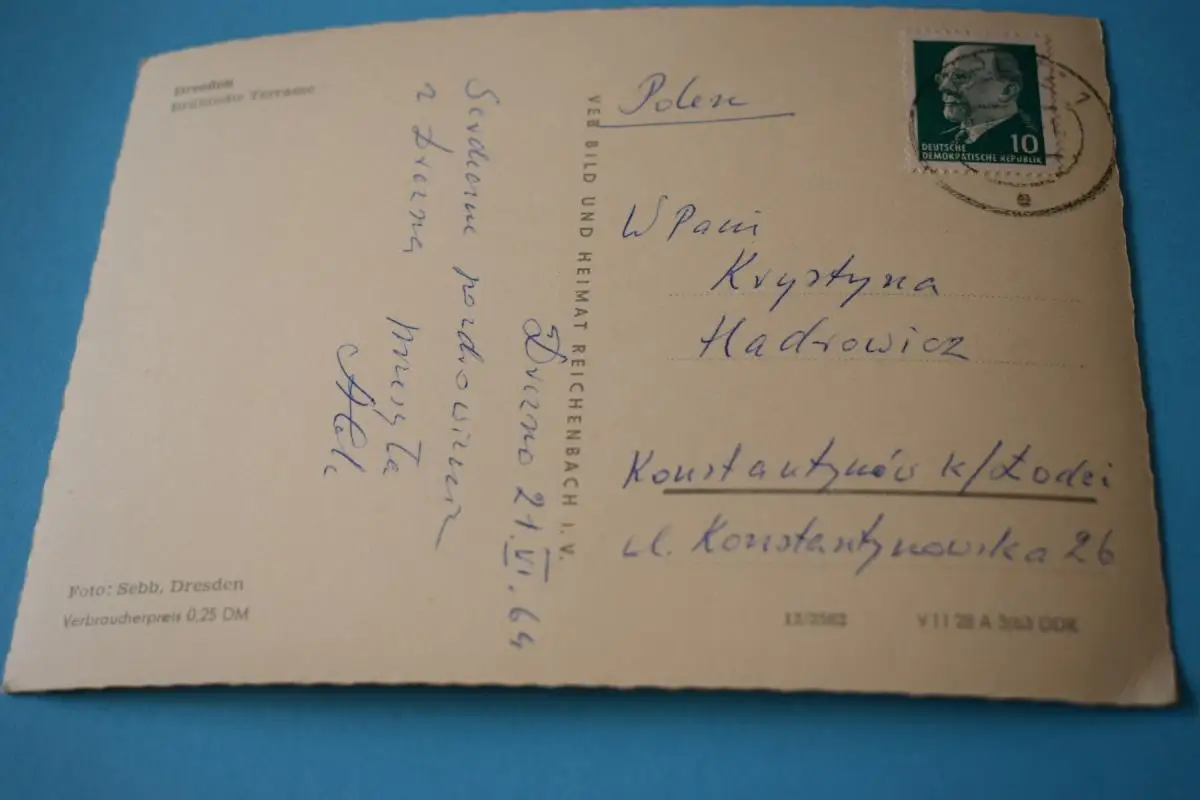 Dresden
Brühlsche Terrasse
Drezno 21.VI.64
Serdeczne pozdrowienia
z Drezna
przesyła
VEB BILD UND HEIMAT REICHENBACH I. V.
Foto: Sebb, Dresden
Verbraucherpreis 0,25 DM
DEUTSCHE
DEMOKRATISCHE REPUBLIK
10
Polen
W Pani
Krystyna
Hadrowicz
Konstantynów k/Łodzi
ul. Konstantynowska 26
V 11 28 A 3/63 DDR